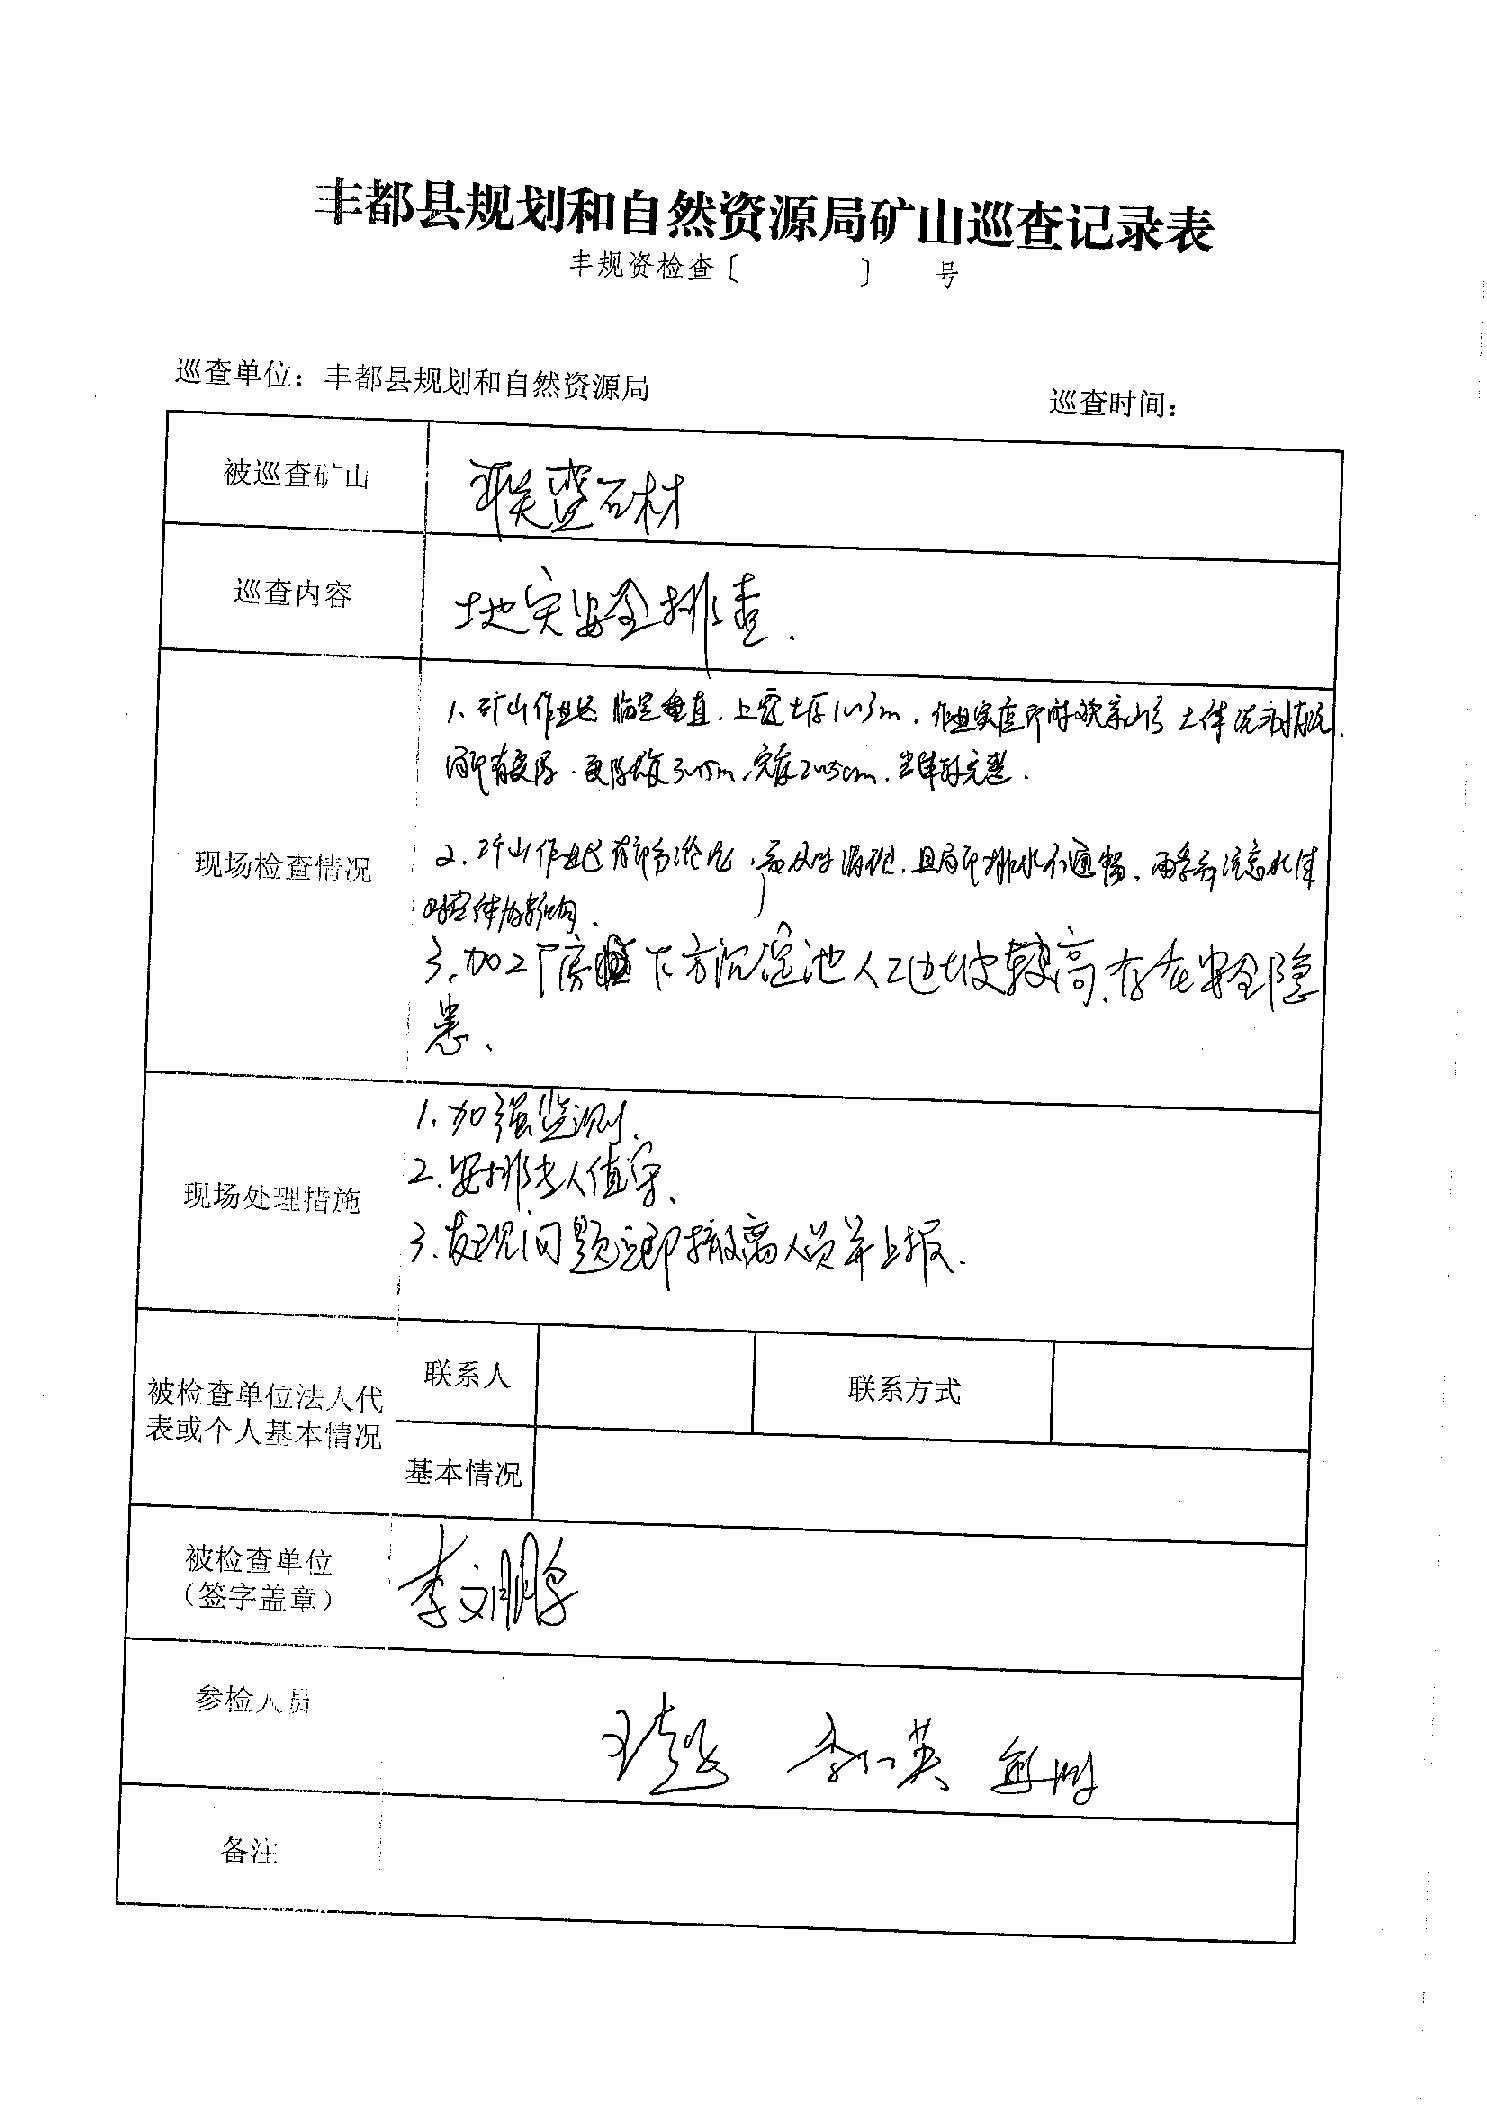 丰都县规划和自然资源局矿山巡查记录表
丰规资检查〔 〕 号
巡查单位：丰都县规划和自然资源局 巡查时间：
被巡查矿山 联盟石材
巡查内容 地灾安全排查.
现场检查情况
1、矿山作业区临空垂直.上覆土厚1~3m.作业实应即时观察山 土体 情况.
局部有裂隙.裂隙 3~15m. 2~5cm. 完整.
2.矿山作业区有部分 .需及时清理.且局部排水不通畅、雨季应注意水体
对岩体的影响.
3、加工厂房 下方沉淀池人工边坡较高、存在安全隐
患、
现场处理措施
1、加强监测.
2.安排专人值守、
3.发现问题立即撤离人员并上报.
被检查单位法人代
表或个人基本情况
联系人 联系方式
基本情况
被检查单位
（签字盖章）
李文鹏
参检人员
备注